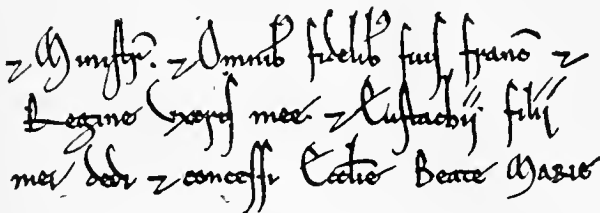 ⁊ Ministr̃. ⁊ Omnib; fidelib; suis franc̃ ⁊
Regine Uxoris mee ⁊ Eustachii filii
mei dedi ⁊ concessi Eccłie Beate Marie